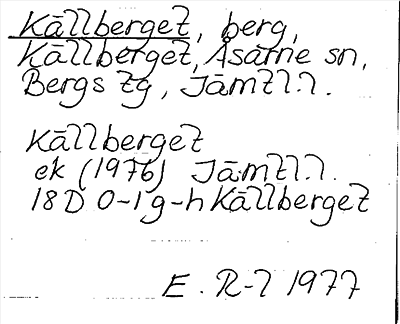 Källberget, berg,
Källberget, Åsarne sn,
Bergs tg, Jämtl.l.
Källberget
ek (1976) Jämtl.l.
18D 0-1g-h Källberget
E. R-l 1977